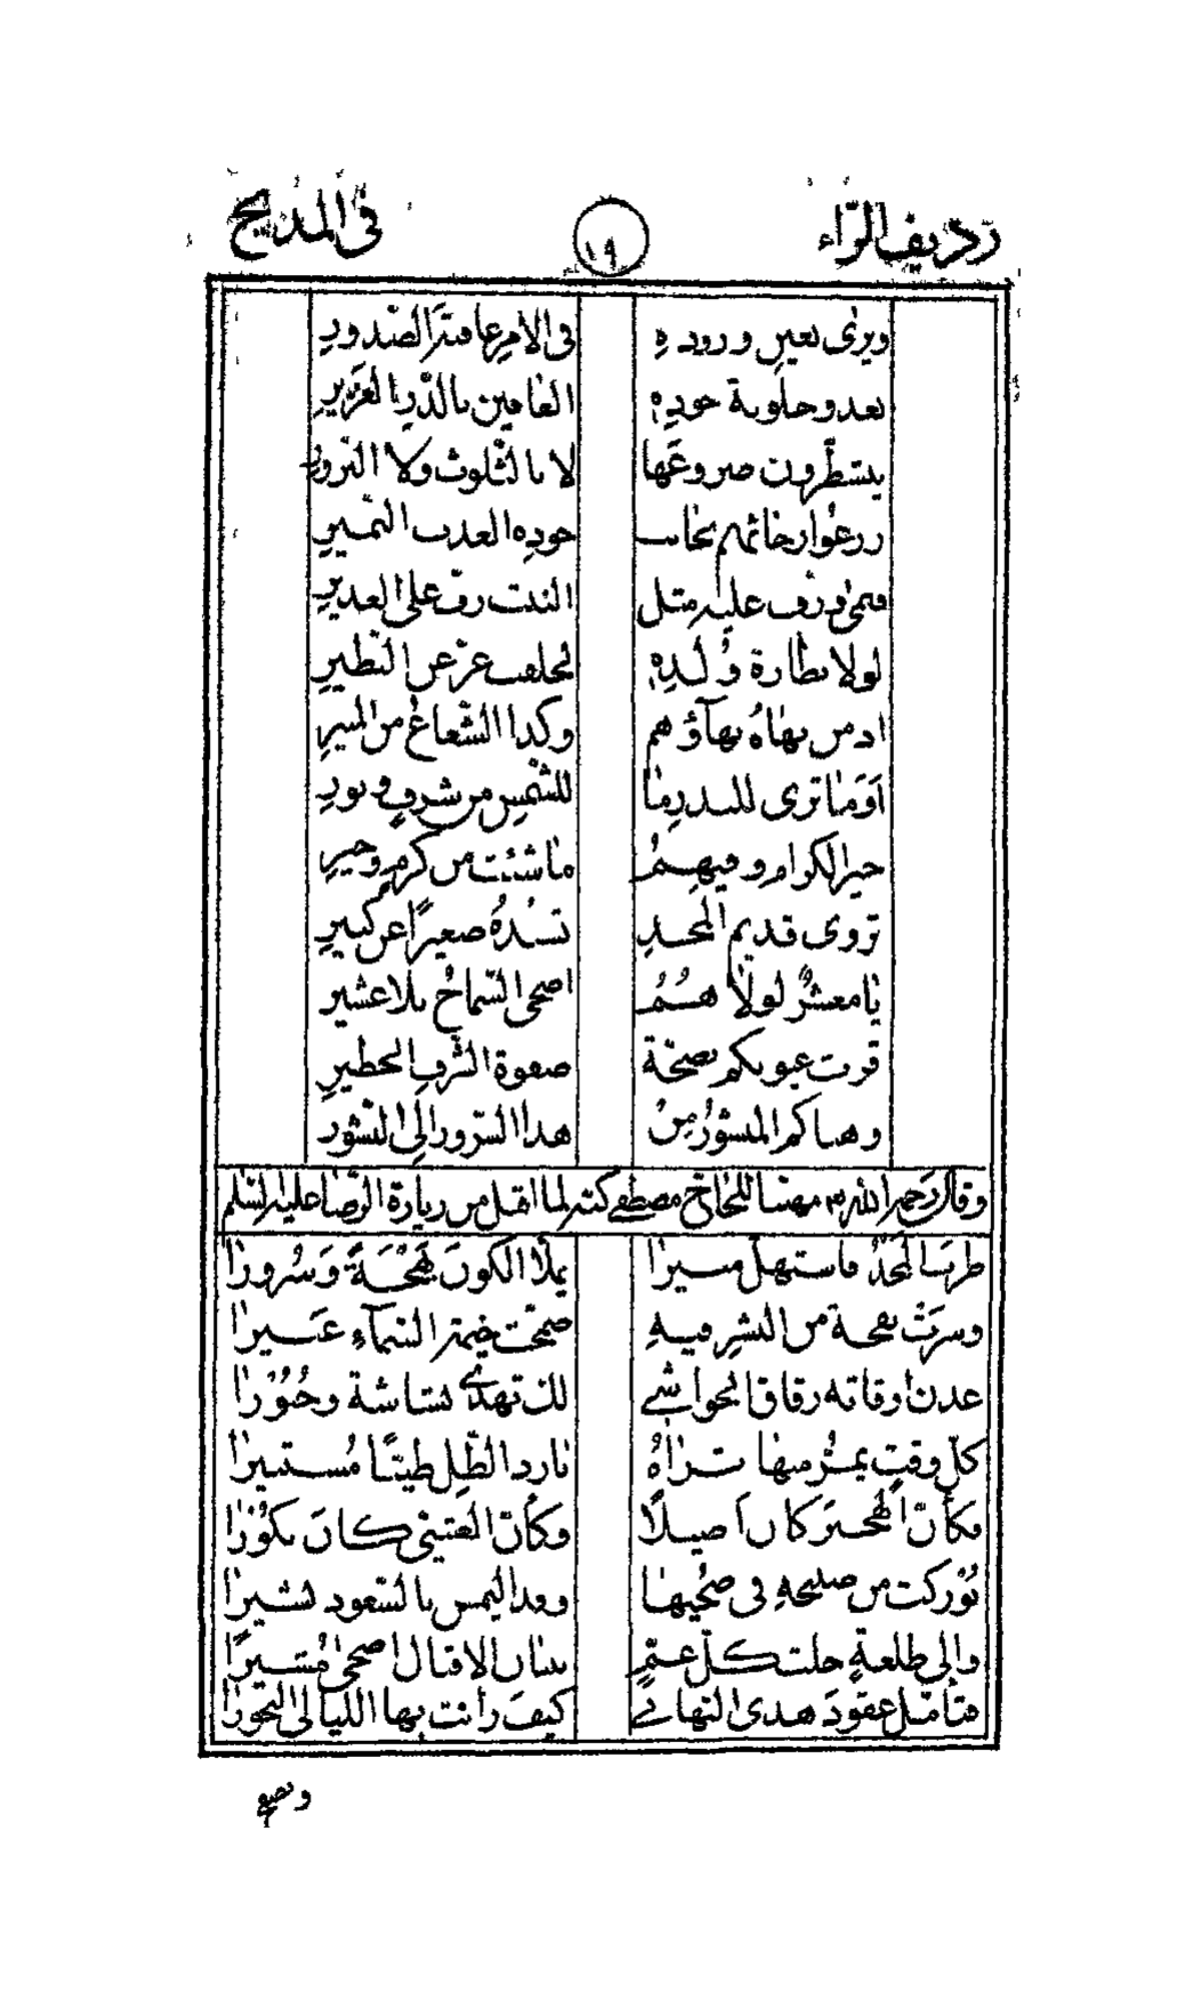 رديف الراء ١٩ في المديح
ويرى بعين وروده في الامر عاقبة الصدور
تعدو حلوبة جوده العافين بالدر الغزير
يستطرون ضروعها لا بالثلوث ولا النزور
زرعوا رجائهم بجانب جوده العذب النمير
فنمى ورف عليه مثل النبت رف على الغدير
لولا نظارة ولده لحلفت عز عن النظير
اذ من بهاه بهاؤهم وكذا الشعاع من المنير
أوما ترى للبدر ما للشمس من شرف ونور
خير الكرام وفيهم ما شئت من كرم وخير
تروى قديم المجد تسنده صغيرا عن كبير
يا معشر لولا هم اضحى السماح بلا عشير
قرت عيونكم بصحة صفوة الشرف الخطير
وهناكم المنشور من هذا السرور الى النشور
وقال رحمه الله مهنيا للحاج مصطفى كبه لما اقبل من زيارة الرضا عليه السلم
طرب المجد فاستهل منيرا يملأ الكون بهجة وسرورا
وسرت نفحة من البشر فيه ضمخت خيمة السماء عبيرا
غدن اوقاته رقاق الحواشي لك تهدي بشاشة وحبورا
كل وقت يمر منها تراه بارد الظل طيبا مستنيرا
فكأن الهجير كان اصيلا وكأن العشي كان بكورا
بوركت من صبيحة في ضحيها وفد اليمن بالسعود بشيرا
والى طلعة جلت كل غم ببنان الاقبال اضحى مشيرا
فتأمل عقود هذى التهاني كيف زانت بها الليالي النحورا